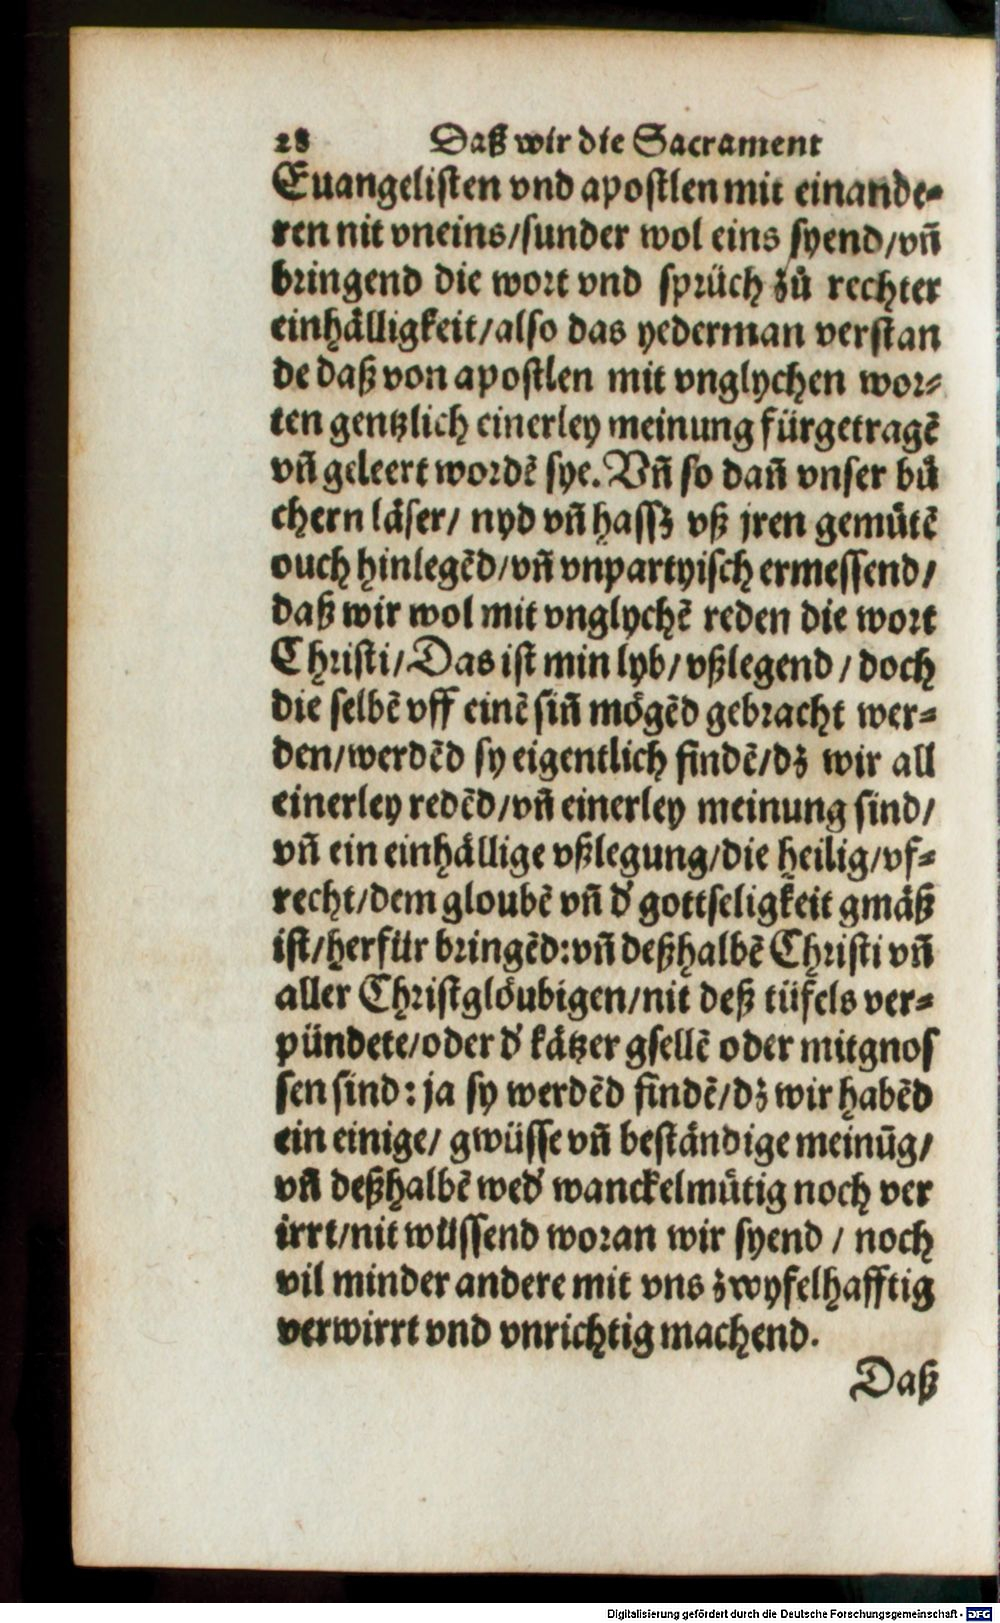 28 Daß wir die Sacrament
Euangelisten vnd apostlen mit einande-
ren nit vneins/sunder wol eins syend/vñ
bringend die wort vnd sprüch zů rechter
einhälligkeit/also das yederman verstan
de daß von apostlen mit vnglychen wor-
ten gentzlich einerley meinung fürgetragẽ
vñ geleert wordẽ sye. Vñ so dañ vnser bů
chern läser/ nyd vñ hassz vß jren gemůtẽ
ouch hinlegẽd/vñ vnpartyisch ermessend/
daß wir wol mit vnglychẽ reden die wort
Christi/Das ist min lyb/vßlegend/doch
die selbẽ vff einẽ siñ mögẽd gebracht wer-
den/werdẽd sy eigentlich findẽ/dz wir all
einerley redẽd/vñ einerley meinung sind/
vñ ein einhällige vßlegung/die heilig/vf-
recht/dem gloubẽ vñ d' gottseligkeit gmäß
ist/herfür bringẽd:vñ deßhalbẽ Christi vñ
aller Christglöubigen/nit deß tüfels ver-
pündete/oder d' kätzer gsellẽ oder mitgnos
sen sind: ja sy werdẽd findẽ/dz wir habẽd
ein einige/ gwüsse vñ beständige meinũg/
vñ deßhalbẽ wed' wanckelmůtig noch ver
irrt/nit wüssend woran wir syend / noch
vil minder andere mit vns zwyfelhafftig
verwirrt vnd vnrichtig machend.
Daß
Digitalisierung gefördert durch die Deutsche Forschungsgemeinschaft - DFG